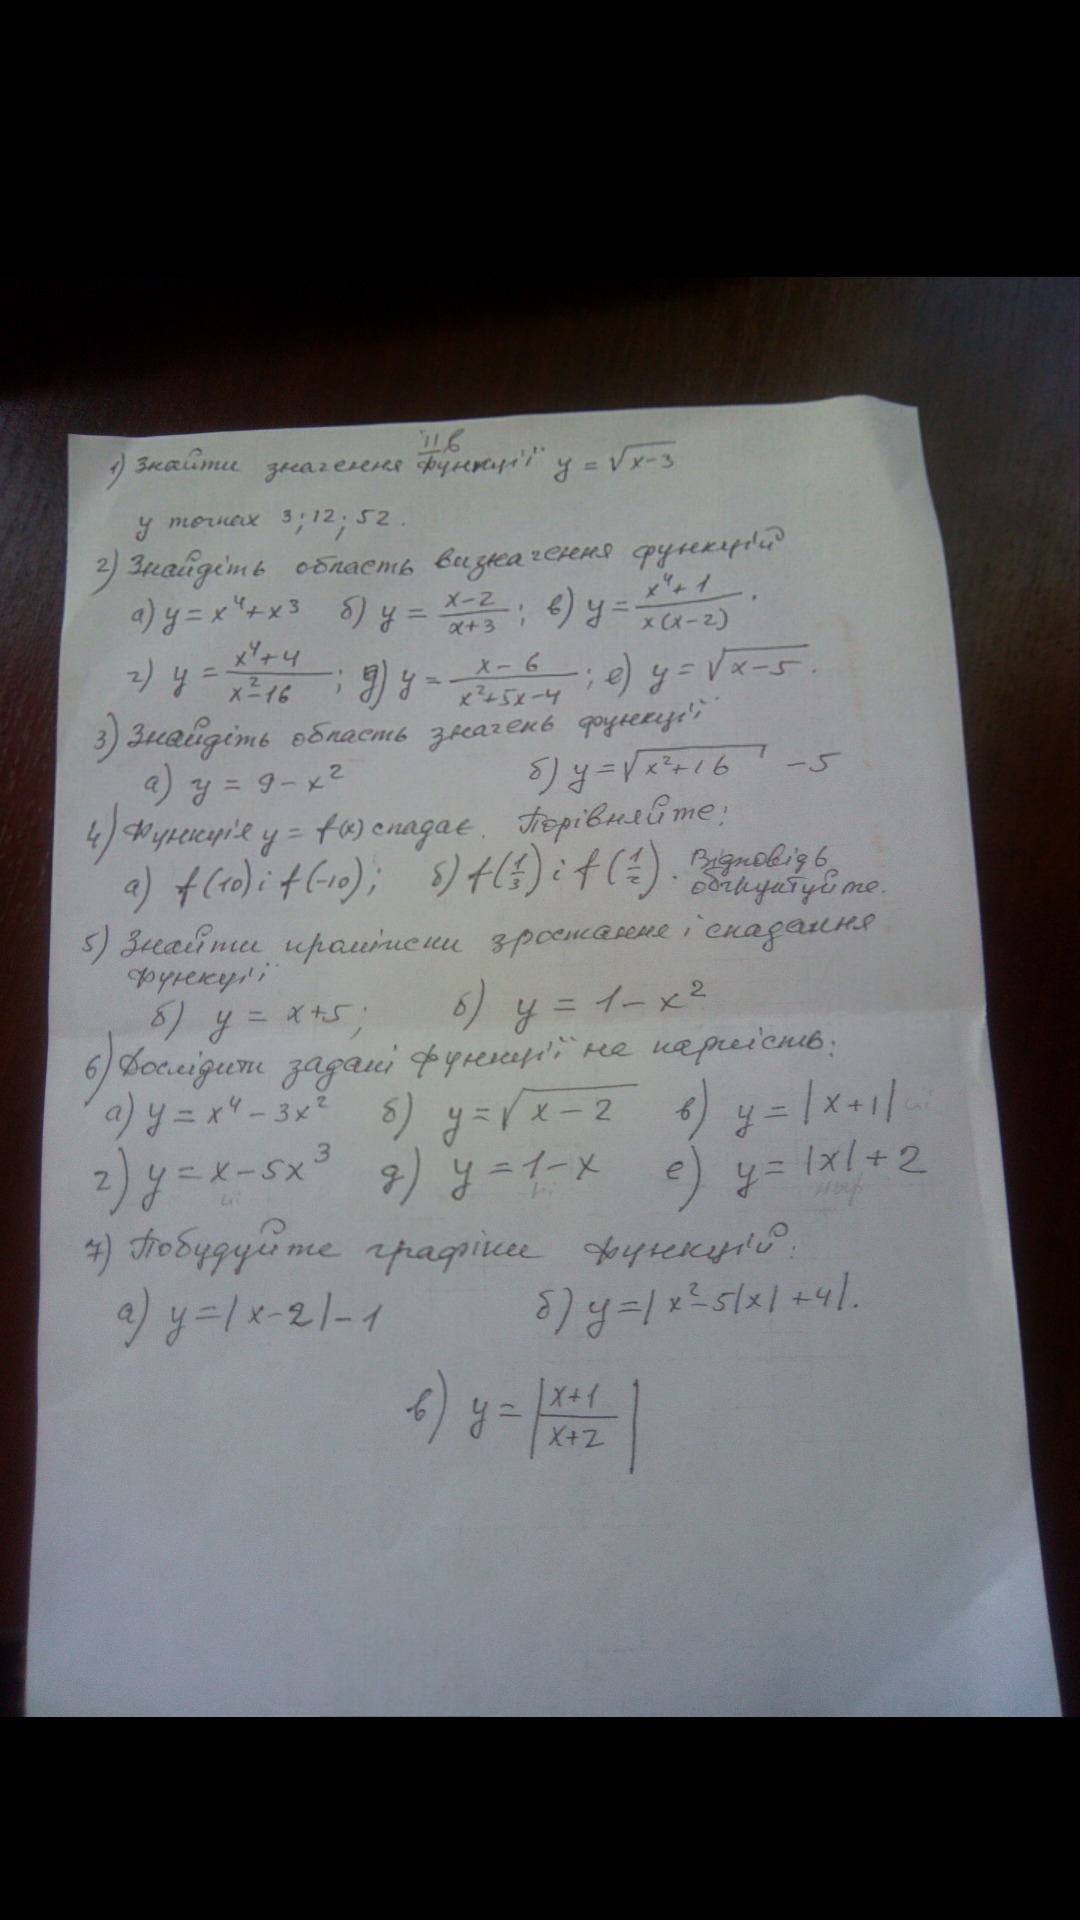 ІІ в
1) Знайти значення функції y = √x-3
у точках 3; 12; 52.
2) Знайдіть область визначення функцій
а) y = x⁴+x³ б) y = (x-2)/(x+3); в) y = (x⁴+1)/(x(x-2)).
г) y = (x⁴+4)/(x²-16); д) y = (x-6)/(x²+5x-4); е) y = √x-5.
3) Знайдіть область значень функції
а) y = 9-x² б) y = √x²+16 -5
4) Функція y = f(x) спадає. Порівняйте:
а) f(10) і f(-10); б) f(1/3) і f(1/2). Відповідь
обґрунтуйте.
5) Знайти проміжки зростання і спадання
функції
б) y = x+5; б) y = 1-x²
6) Дослідити задані функції на парність:
а) y = x⁴-3x² б) y = √x-2 в) y = |x+1| ні
г) y = x-5x³ д) y = 1-x е) y = |x|+2
ні ні
7) Побудуйте графіки функцій:
а) y = |x-2|-1 б) y = |x²-5|x|+4|.
в) y = |(x+1)/(x+2)|